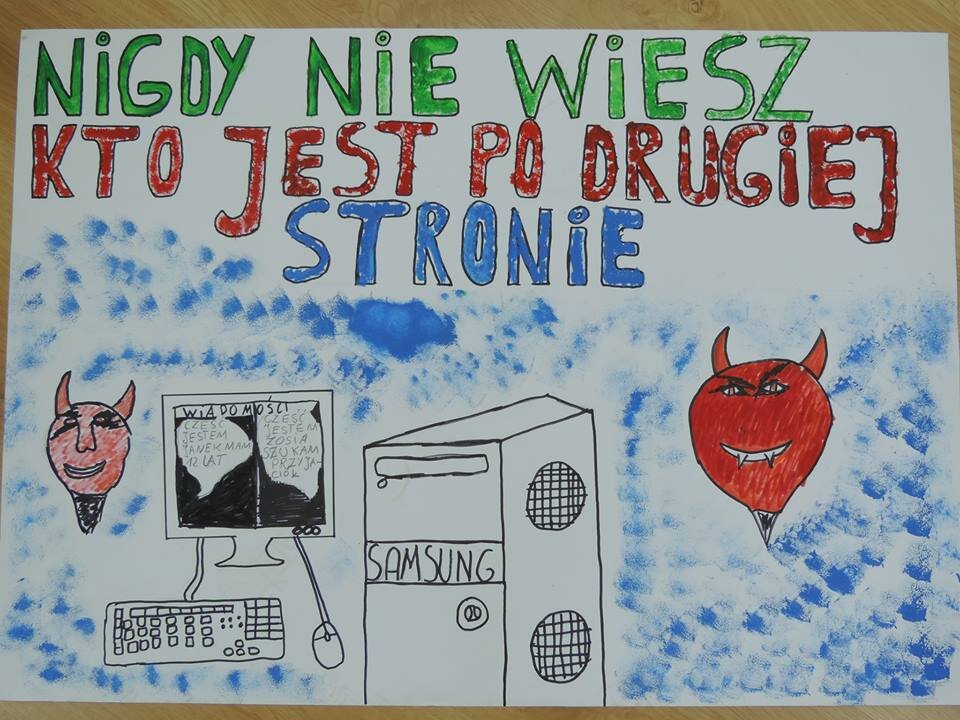 NiGDY NiE WiESZ
KTO JEST PO DRUGiEJ
STRONiE
WiADOMOŚCi
CZEŚĆ
JESTEM
JANEK MAM
12 LAT
CZEŚĆ
JESTEM
ZOSIA
SZUKAM
PRZYJA-
CIÓŁ
SAMSUNG